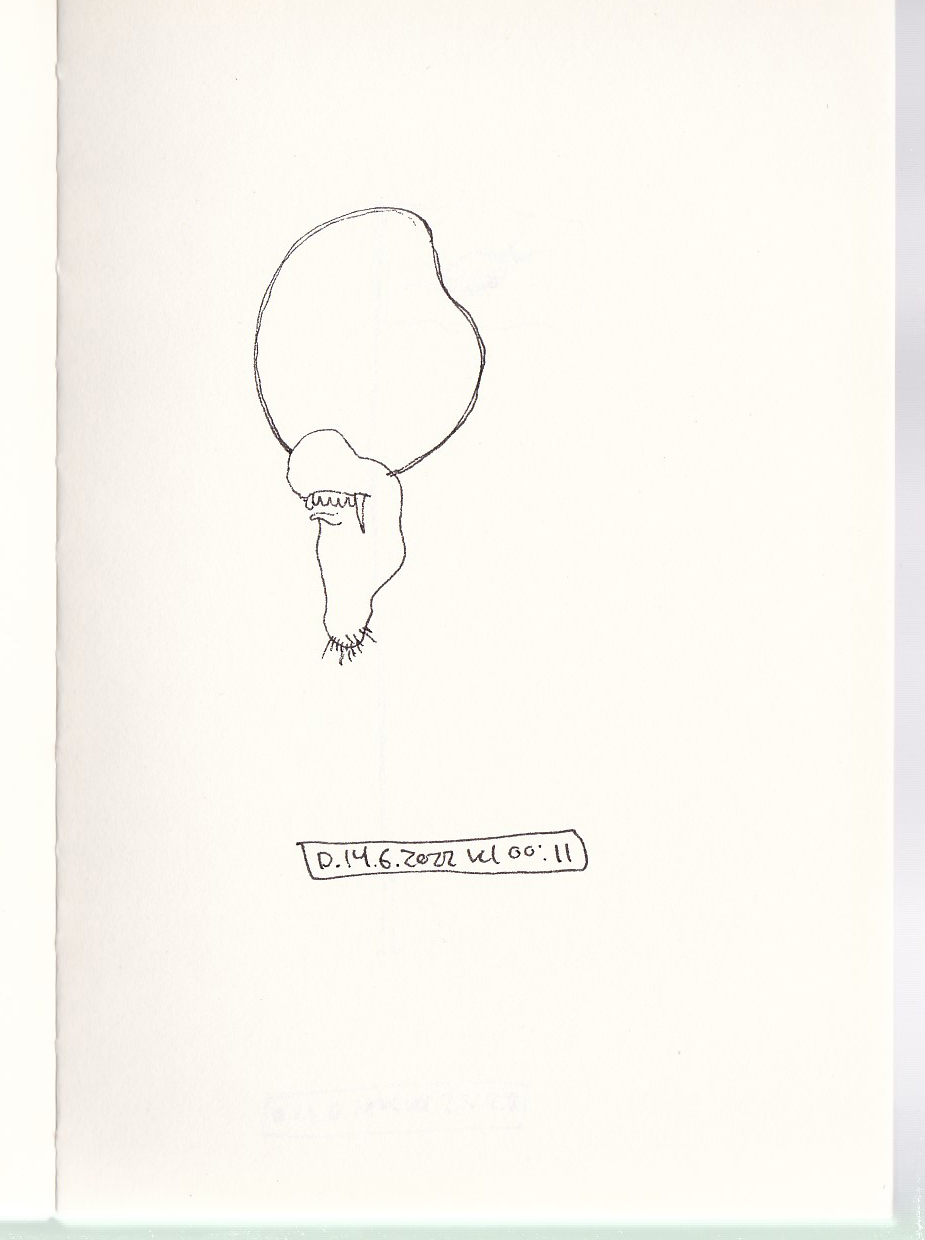 D.14.6.2022 kl 00:11